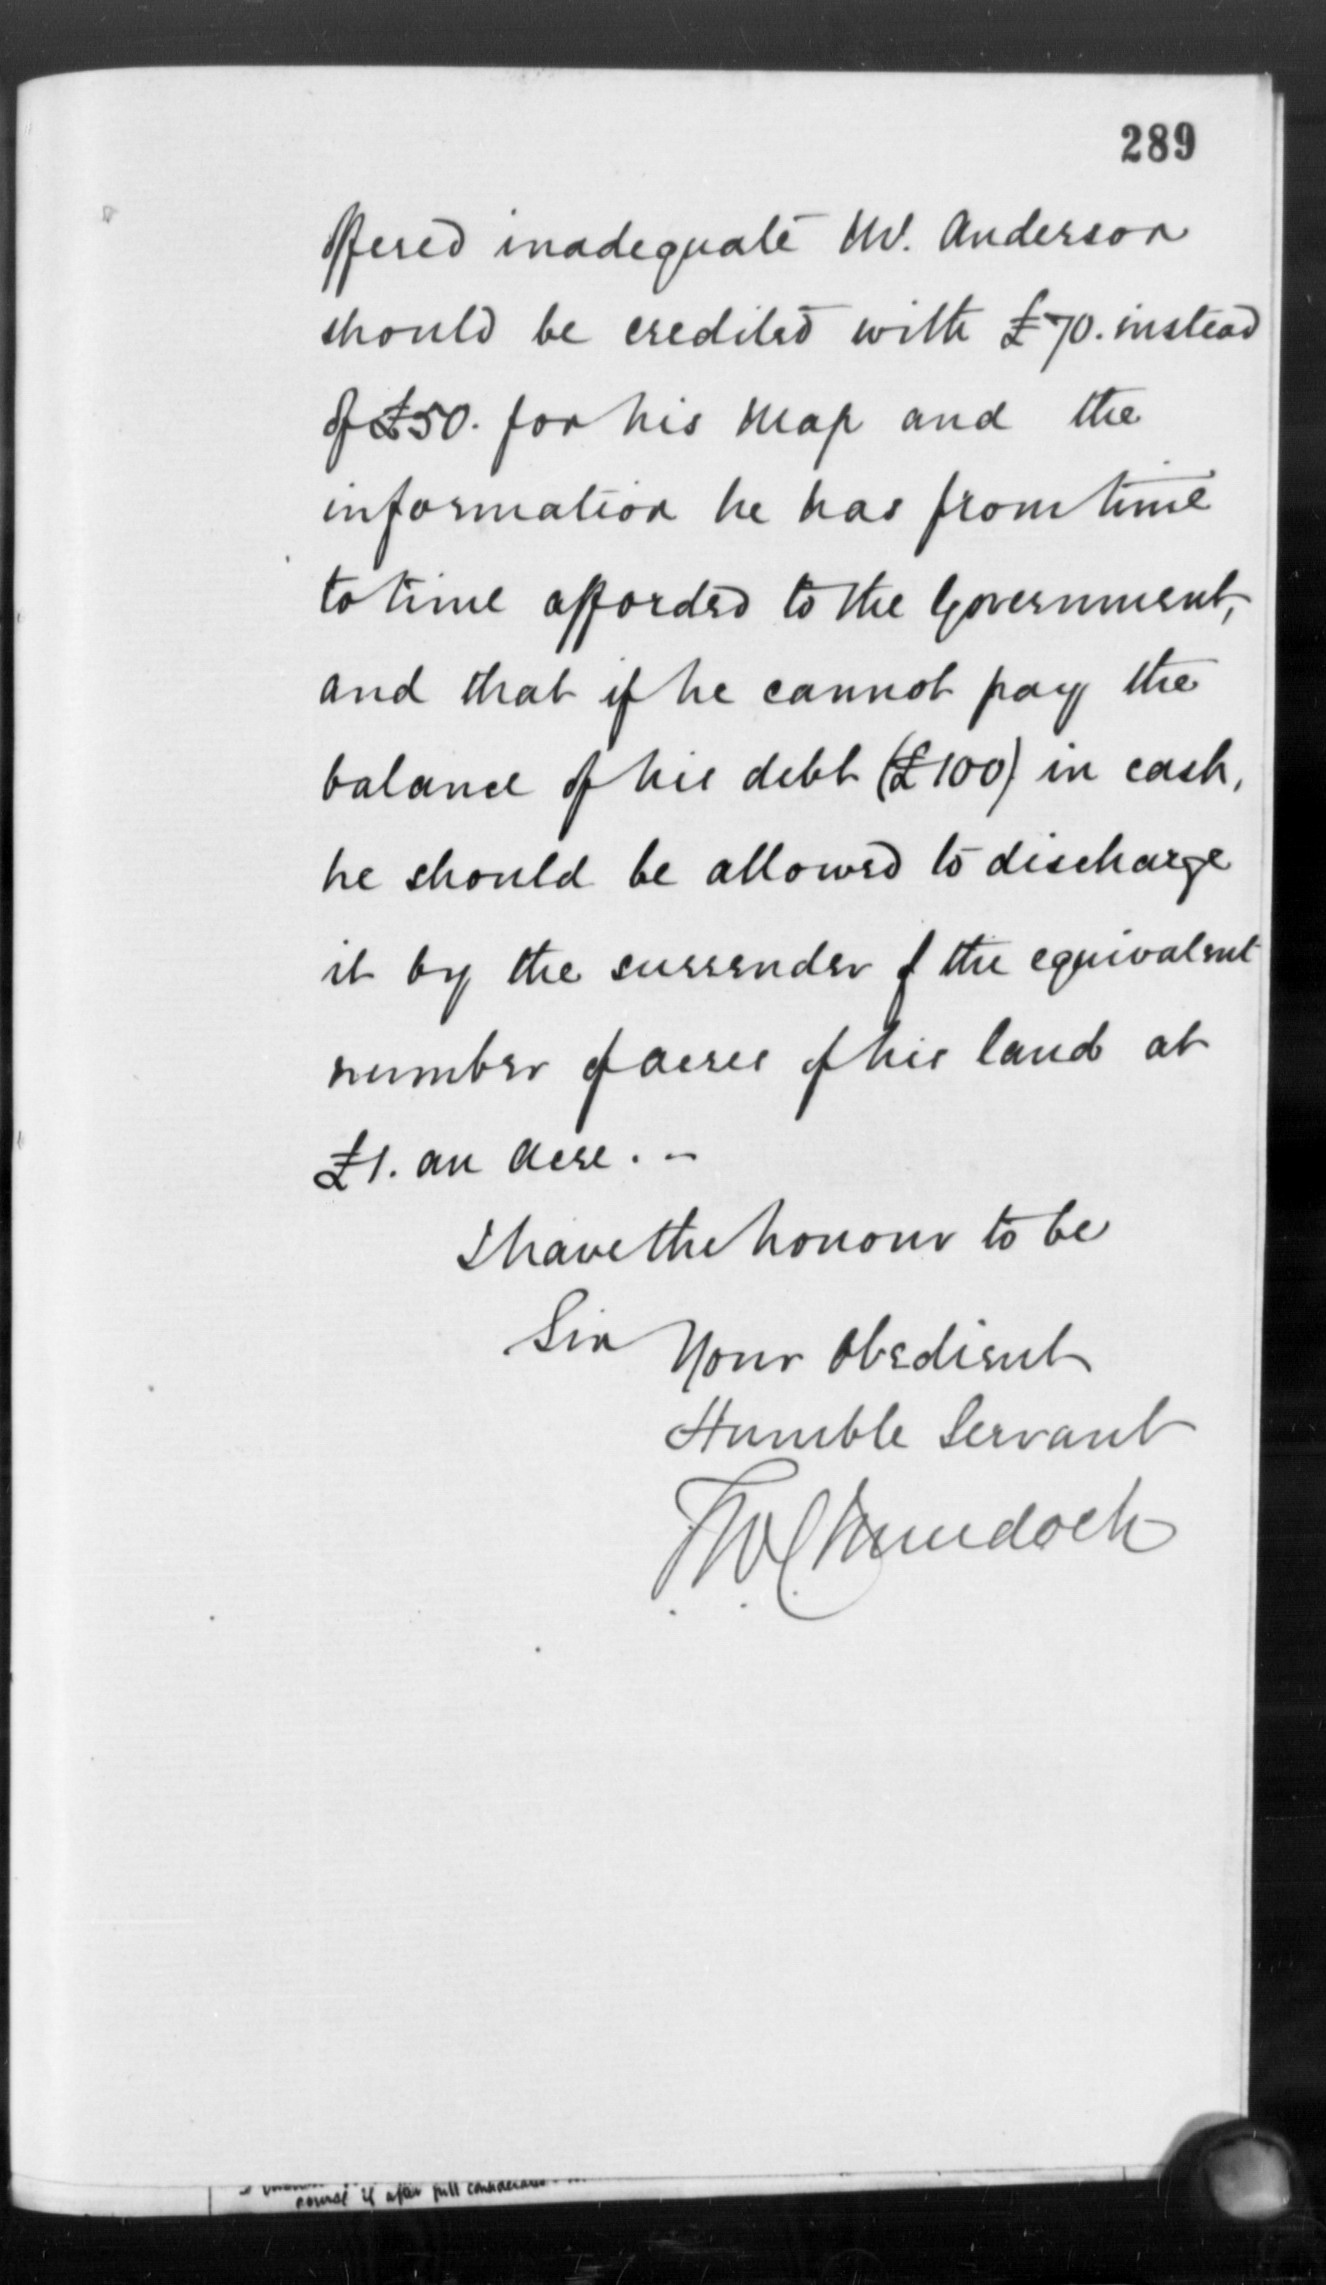 289
offered inadequate Mr. Anderson
should be credited with £70. instead
of £50. for his Map and the
information he has from time
to time afforded to the Government,
and that if he cannot pay the
balance of his debt (£100) in cash,
he should be allowed to discharge
it by the surrender of the equivalent
number of acres of his land at
£1. an acre. -
I have the honour to be
Sir
Your Obedient
Humble Servant
T.W.C. Murdoch
course if after full